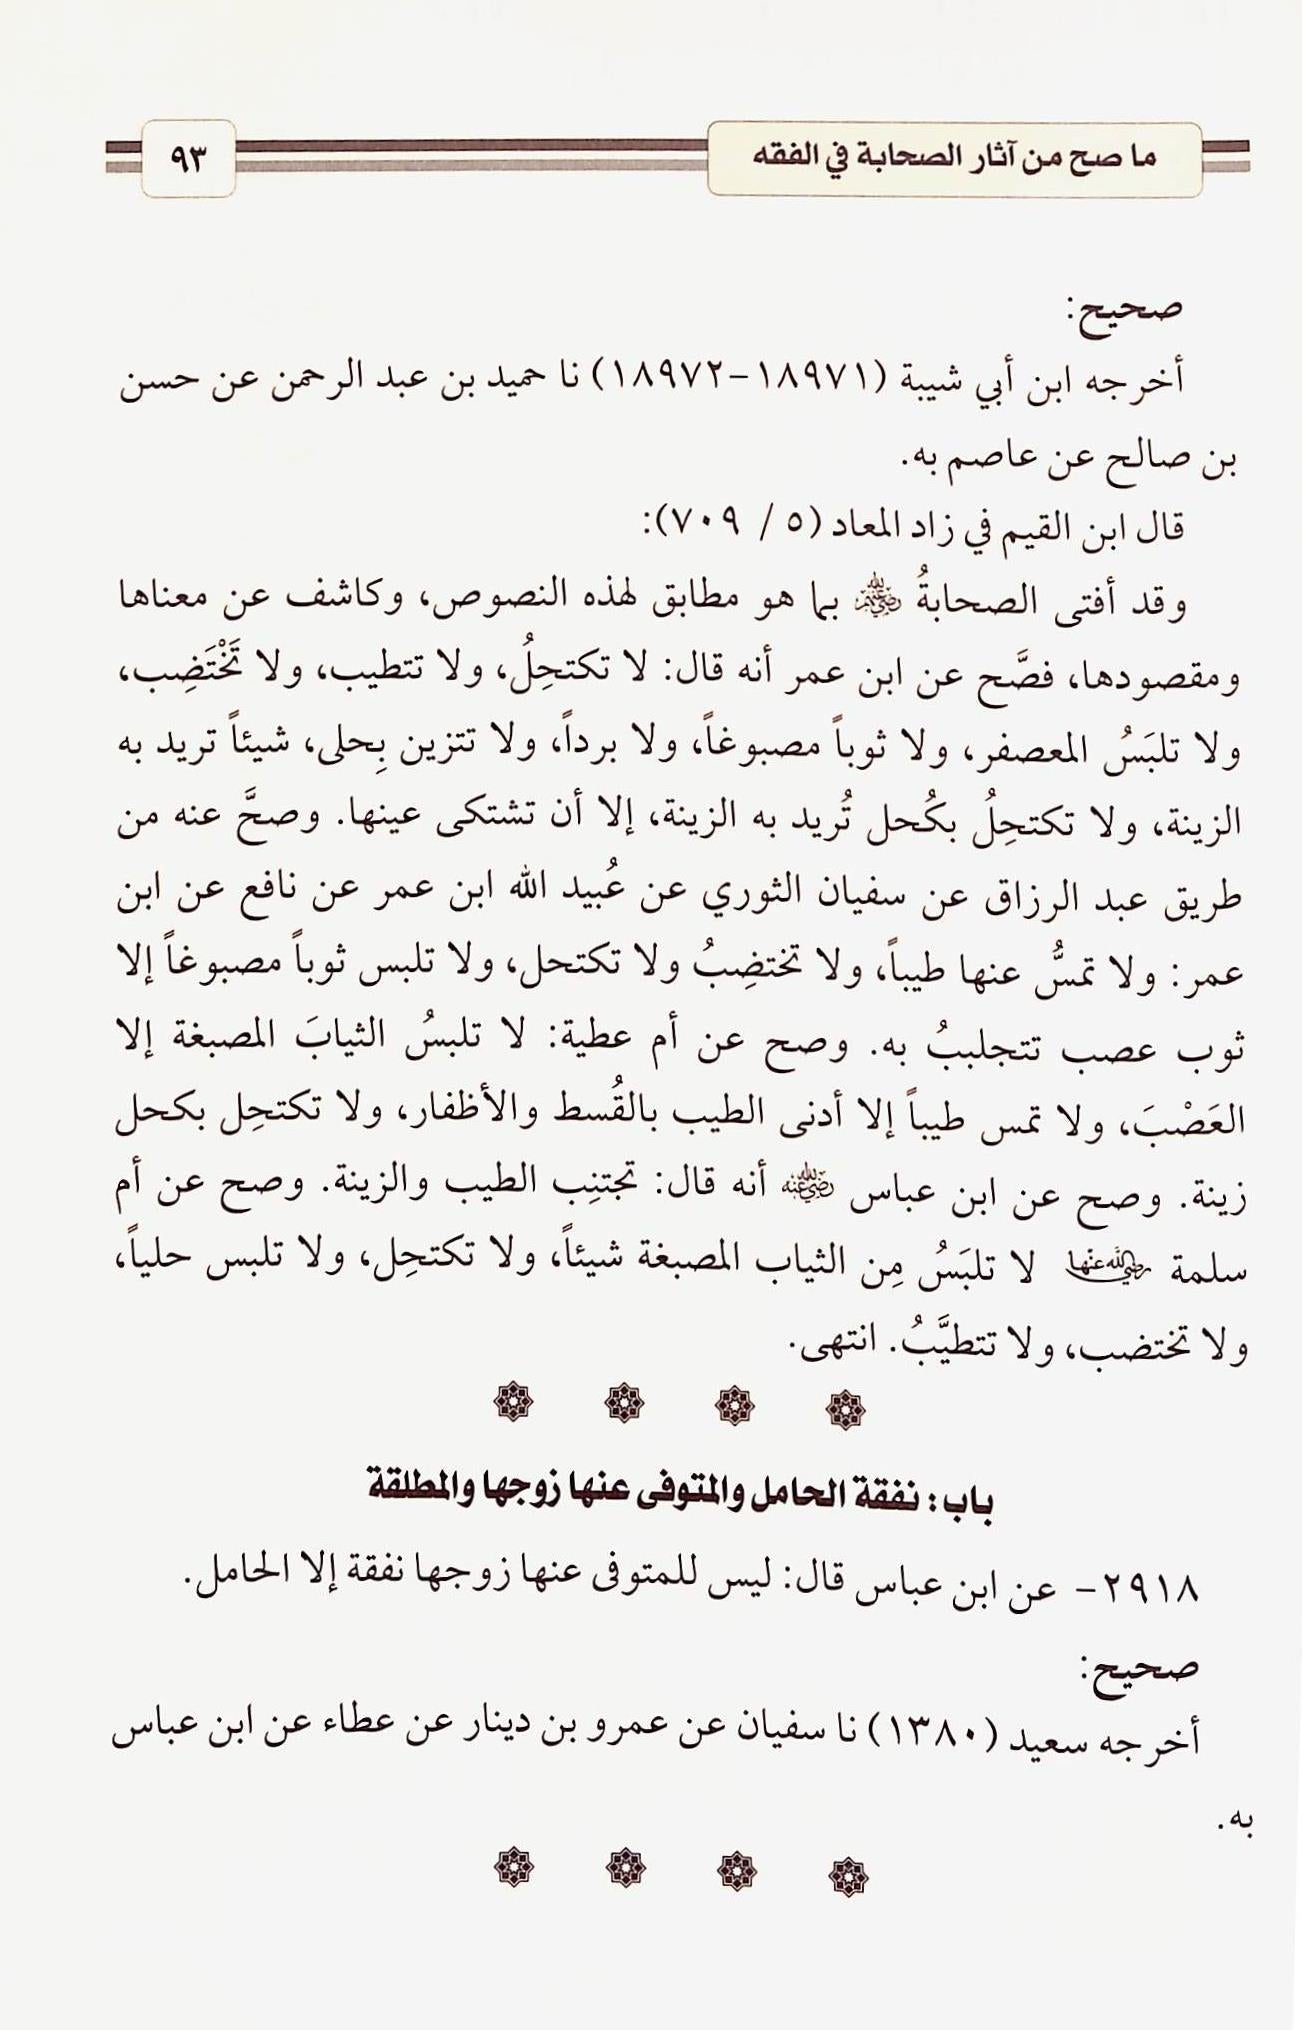 ما صح من آثار الصحابة في الفقه
٩٣
صحيح:
أخرجه ابن أبي شيبة (١٨٩٧١-١٨٩٧٢) نا حميد بن عبد الرحمن عن حسن
بن صالح عن عاصم به.
قال ابن القيم في زاد المعاد (٥ / ٧٠٩):
وقد أفتى الصحابةُ رضي الله عنهم بما هو مطابق لهذه النصوص، وكاشف عن معناها
ومقصودها، فصَّح عن ابن عمر أنه قال: لا تكتحِلُ، ولا تتطيب، ولا تَخْتَضِب،
ولا تلبَسُ المعصفر، ولا ثوباً مصبوغاً، ولا برداً، ولا تتزين بِحلى، شيئاً تريد به
الزينة، ولا تكتحِلُ بكُحل تُريد به الزينة، إلا أن تشتكى عينها. وصحَّ عنه من
طريق عبد الرزاق عن سفيان الثوري عن عُبيد الله ابن عمر عن نافع عن ابن
عمر: ولا تمسُّ عنها طيباً، ولا تختضِبُ ولا تكتحل، ولا تلبس ثوباً مصبوغاً إلا
ثوب عصب تتجلببُ به. وصح عن أم عطية: لا تلبسُ الثيابَ المصبغة إلا
العَصْبَ، ولا تمس طيباً إلا أدنى الطيب بالقُسط والأظفار، ولا تكتحِل بكحل
زينة. وصح عن ابن عباس رضي الله عنه أنه قال: تجتنِب الطيب والزينة. وصح عن أم
سلمة رضي الله عنها لا تلبَسُ مِن الثياب المصبغة شيئاً، ولا تكتحِل، ولا تلبس حلياً،
ولا تختضب، ولا تتطيَّبُ. انتهى.
باب: نفقة الحامل والمتوفى عنها زوجها والمطلقة
٢٩١٨- عن ابن عباس قال: ليس للمتوفى عنها زوجها نفقة إلا الحامل.
صحيح:
أخرجه سعيد (١٣٨٠) نا سفيان عن عمرو بن دينار عن عطاء عن ابن عباس
به.